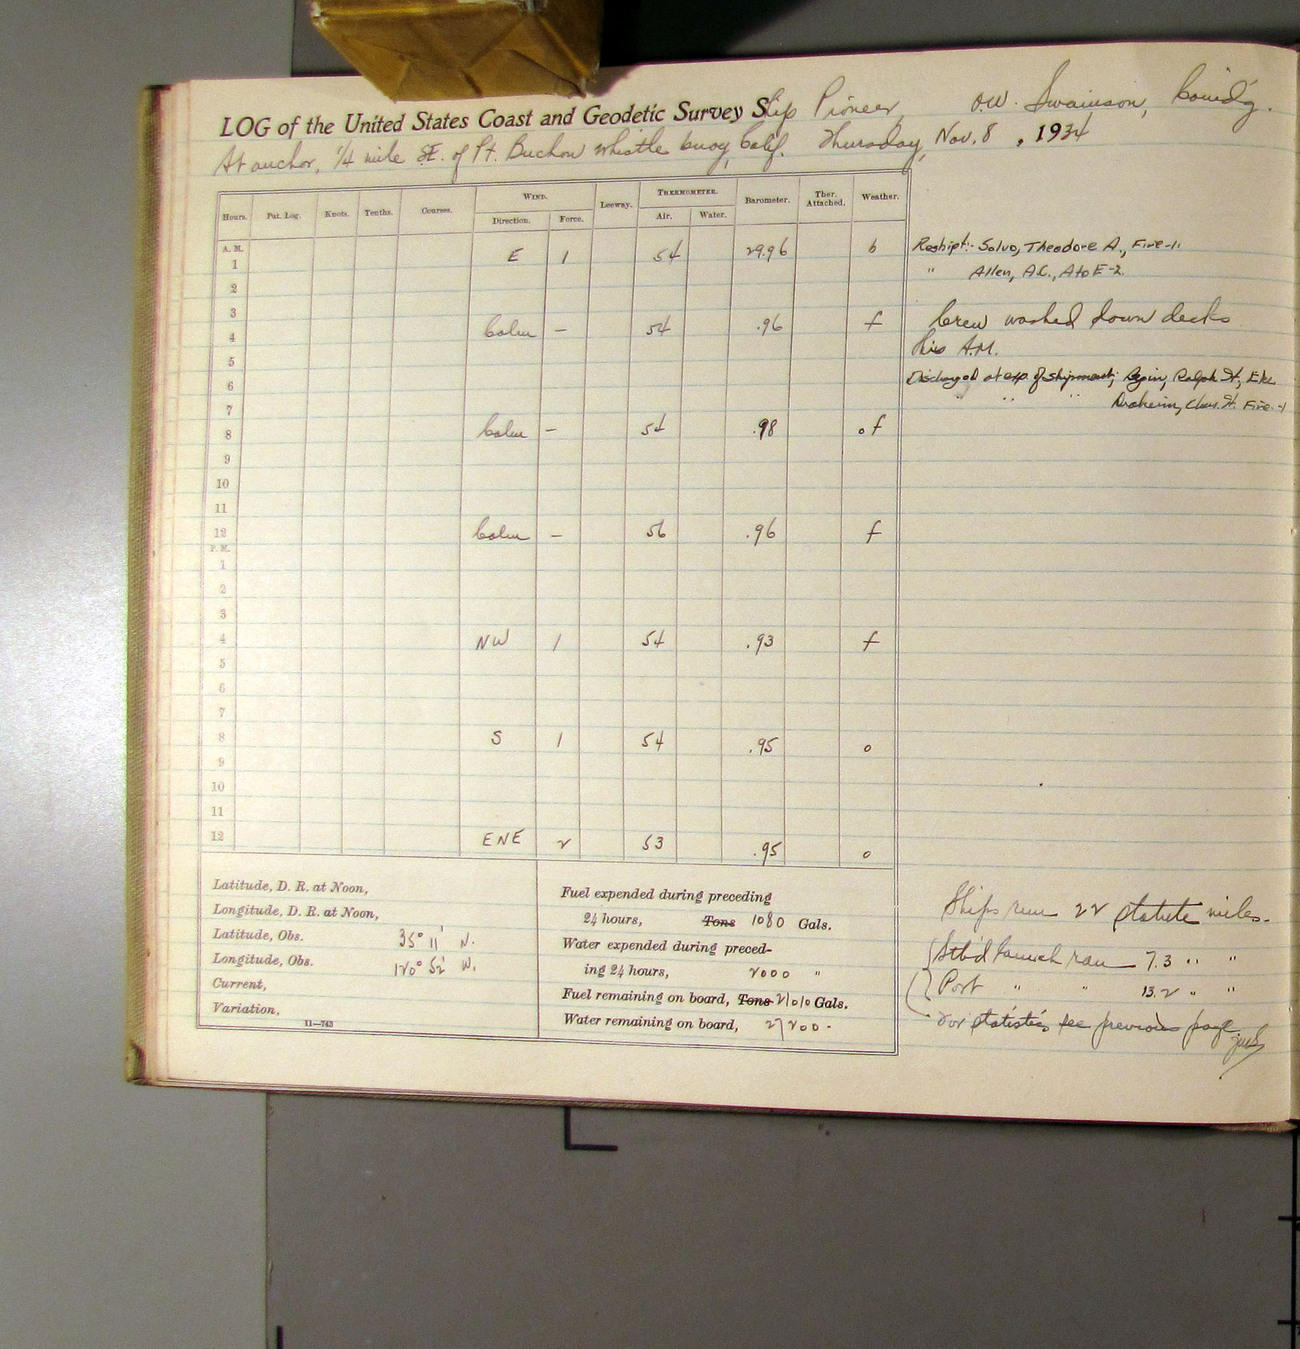 LOG of the United States Coast and Geodetic Survey Ship Pioneer, O.W. Swainson, Comd'g.
At anchor, 1/4 mile SE. of Pt. Buchon whistle buoy, Calif. Thursday, Nov. 8, 1934
Hours. Pat. Log. Knots. Tenths. Courses. WIND. Leeway. THERMOMETER. Barometer. Ther. Attached. Weather.
Direction. Force. Air. Water.
A. M.
1 E 1 54 29.96 b
2
3
4 Calm — 54 .96 f
5
6
7
8 Calm — 54 .98 of
9
10
11
12 Calm — 56 .96 f
P. M.
1
2
3
4 NW 1 54 .93 f
5
6
7
8 S 1 54 .95 o
9
10
11
12 ENE 2 53 .95 o
Reshipt:- Salvo, Theodore A., Fire-1.
" Allen, A.C., A to E-2.
Crew washed down decks
this A.M.
Discharged at exp. of shipment; Ralph H.,
" " " Chas. H. Fire.-1
Latitude, D. R. at Noon,
Longitude, D. R. at Noon,
Latitude, Obs. 35° 11' N.
Longitude, Obs. 120° 52' W.
Current,
Variation,
11—743
Fuel expended during preceding
24 hours, Tons 1080 Gals.
Water expended during preced-
ing 24 hours, 2000 "
Fuel remaining on board, Tons 21010 Gals.
Water remaining on board, 27200 -
Ships run 22 statute miles.
Stb'd launch ran 7.3 " "
Port " " 13.2 " "
For statistics see previous page